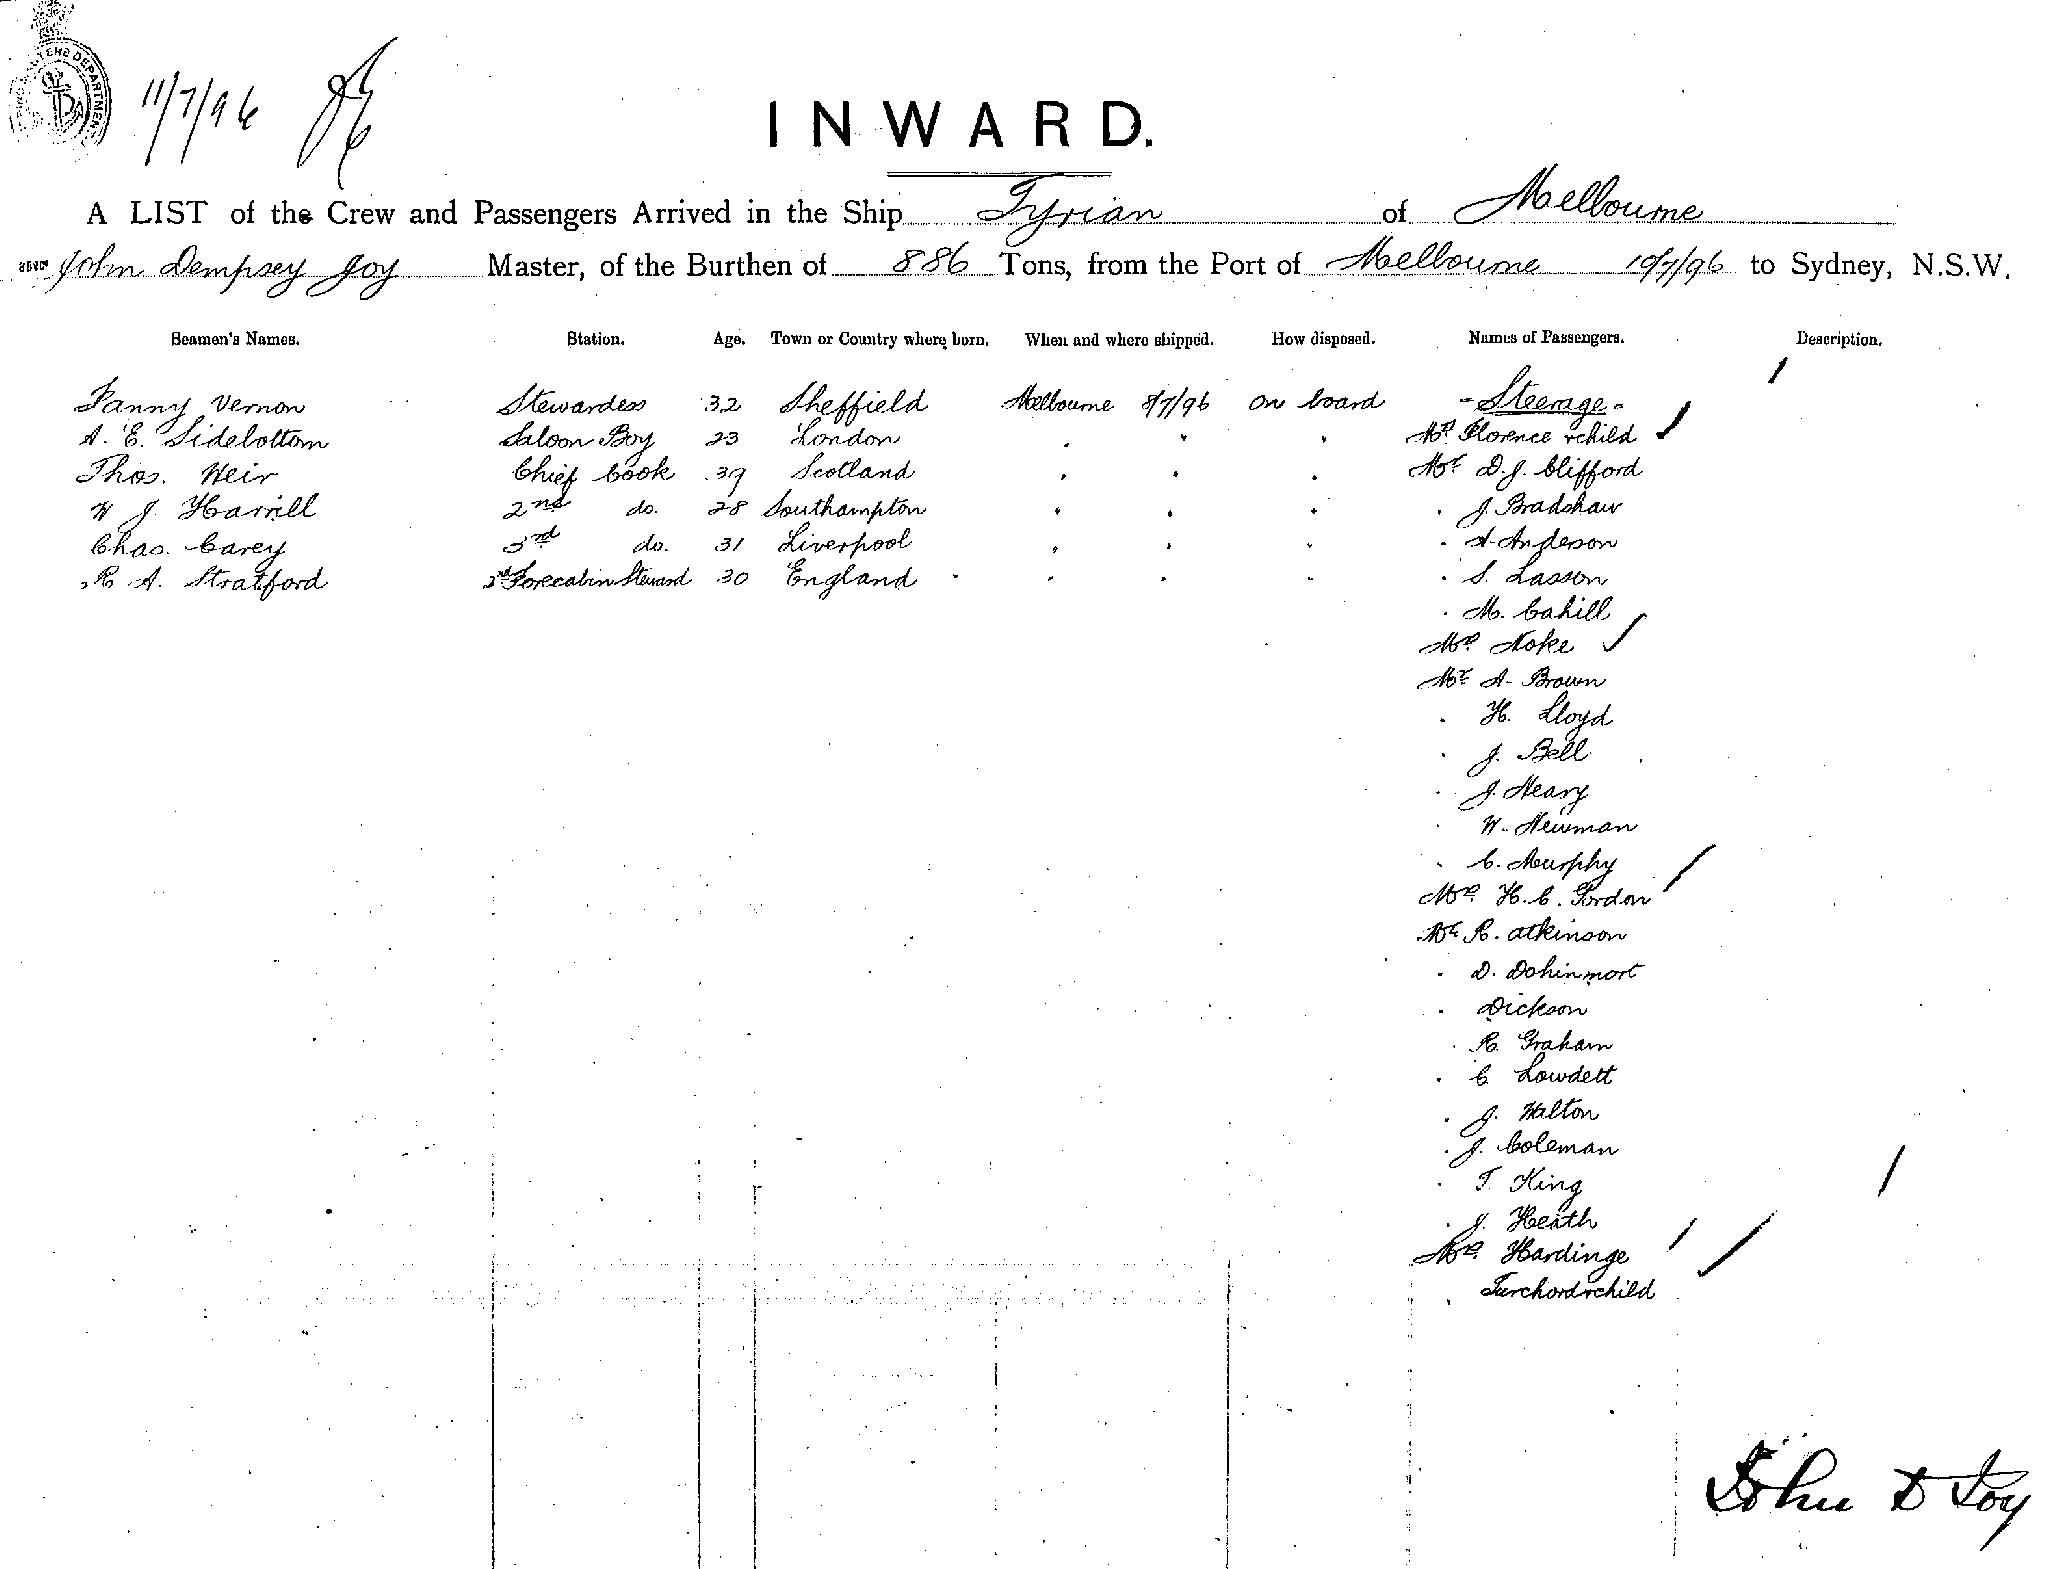 11/7/96
INWARD.
A LIST of the Crew and Passengers Arrived in the Ship Tyrian of Melbourne
John Dempsey Joy Master, of the Burthen of 886 Tons, from the Port of Melbourne 10/7/96 to Sydney, N.S.W.
Seamen's Names. Station. Age. Town or Country where born. When and where shipped. How disposed. Names of Passengers. Description.
Fanny Vernon Stewardess 32 Sheffield Melbourne 8/7/96 on board - Steerage -
A. E. Sidebottom Saloon Boy 23 London " " " Mrs Florence + child
Thos. Weir Chief Cook 39 Scotland " " " Mr D. J. Clifford
W J Harrill 2nd do. 28 Southampton " " " " J. Bradshaw
Chas. Carey 3rd do. 31 Liverpool " " " " A Anderson
R A. Stratford Forecabin Steward 30 England " " " " S. Lasson
" M. Cahill
Mrs Noke
Mr A. Brown
" H. Lloyd
" J. Bell
" J. Neary
" W. Newman
" C. Murphy
Mrs H. C. Gordon
Mr R. Atkinson
" D.
" Dickson
" R. Graham
" C Lowdett
" J. Walton
" J. Coleman
" T. King
" J. Heath
Mrs Hardinge
" + child
John D Joy